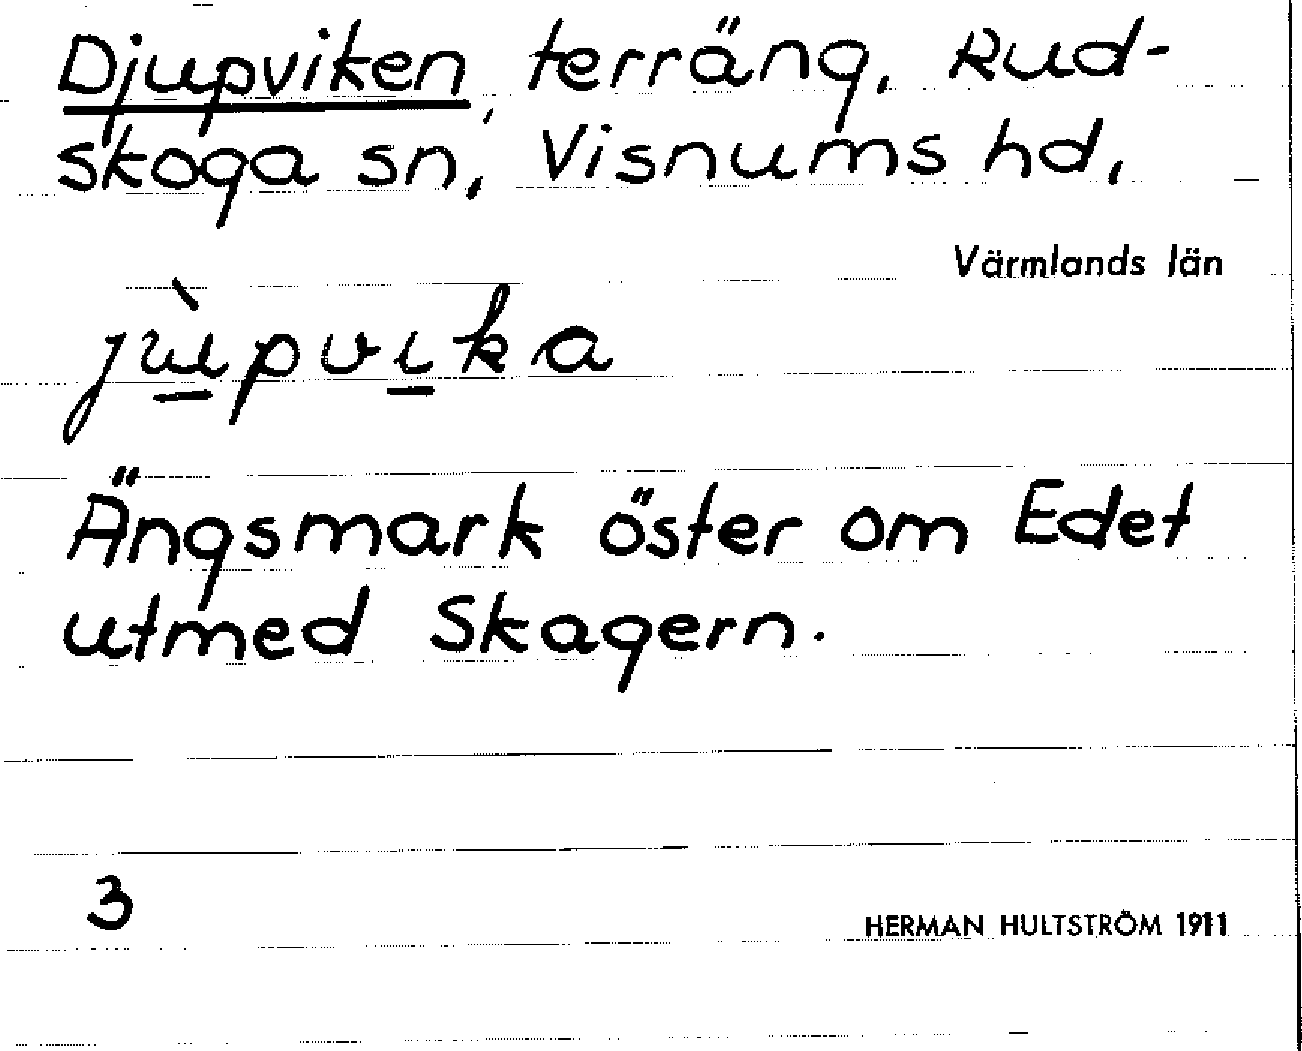 Djupviken, terräng, Rud-
skoga sn, Visnums hd,
Värmlands län
jùpvika
Ängsmark öster om Edet
utmed Skagern.
3
HERMAN HULTSTRÖM 1911